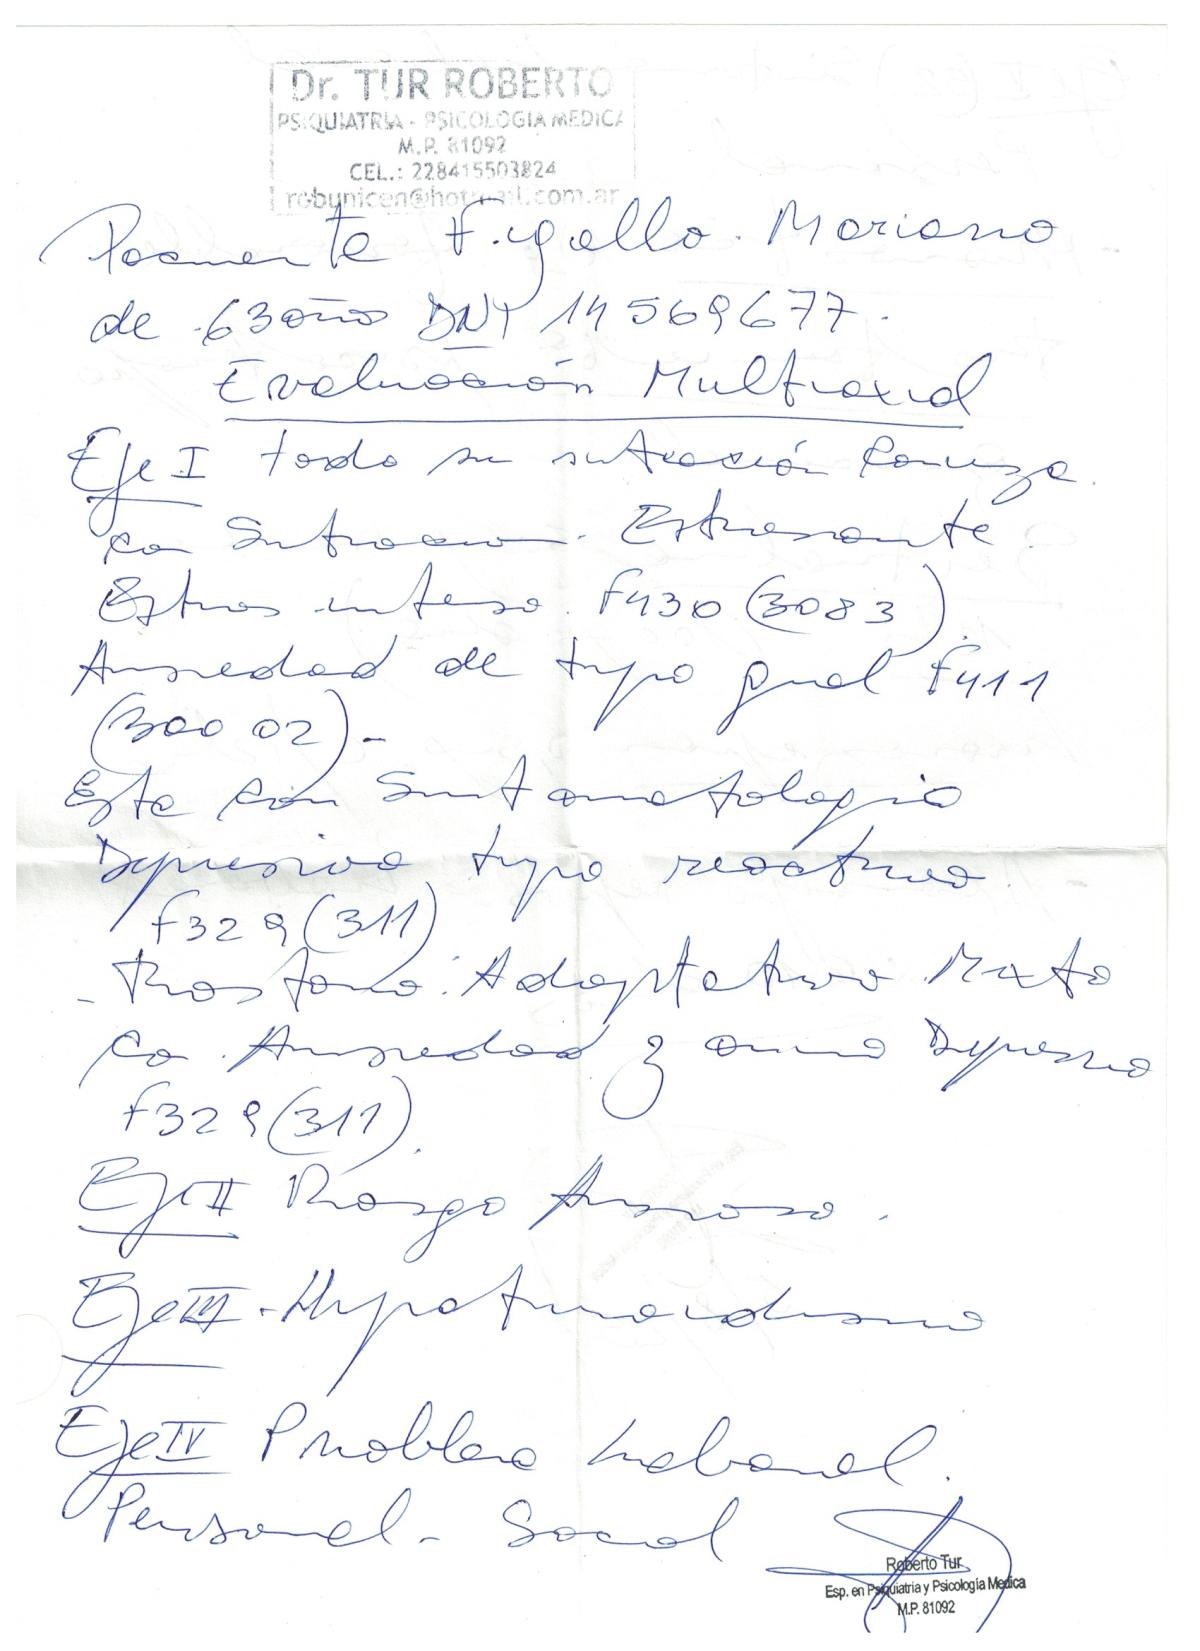 Dr. TUR ROBERTO
PSIQUIATRIA - PSICOLOGIA MEDICA
M.P. 81092
CEL.: 228415503824
robunicen@hotmail.com.ar
Paciente Figallo. Mariano
de 63 año DNI 14569677.
Evaluación Multiaxial
Eje I todo su situación comienza
con Situacion. Estresante.
Estres intenso. F430 (3083).
Ansiedad de tipo gral F411
(300 02) -
Este con Sintomatologia
Depresiva tipo reactivo.
F329 (311)
- Trastorno: Adaptativo Mixto
co. Ansiedad y animo Depresivo
F329 (311).
Eje II Riesgo Ansioso.
Eje III - Hipotiroidismo
Eje IV Problema Laboral.
Personal - Social
Roberto Tur
Esp. en Psiquiatria y Psicología Medica
M.P. 81092